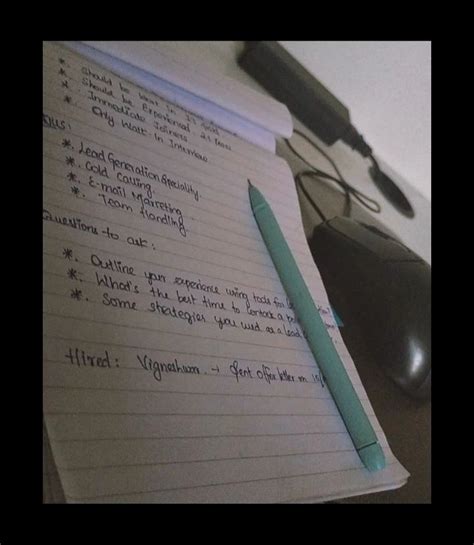 *. Should be
*. Should be Experienced
*. Immediate Joiners
*. Only Walk In Interview
*. Lead Generation Speciality.
*. Cold Calling.
*. E-mail Marketing
*. Team Handling
Questions to ask:
*. Outline your experience using tools for
*. What's the best time to contack a
*. Some strategies you used as a Lead
Hired: Vigneshwar → Sent offer letter on